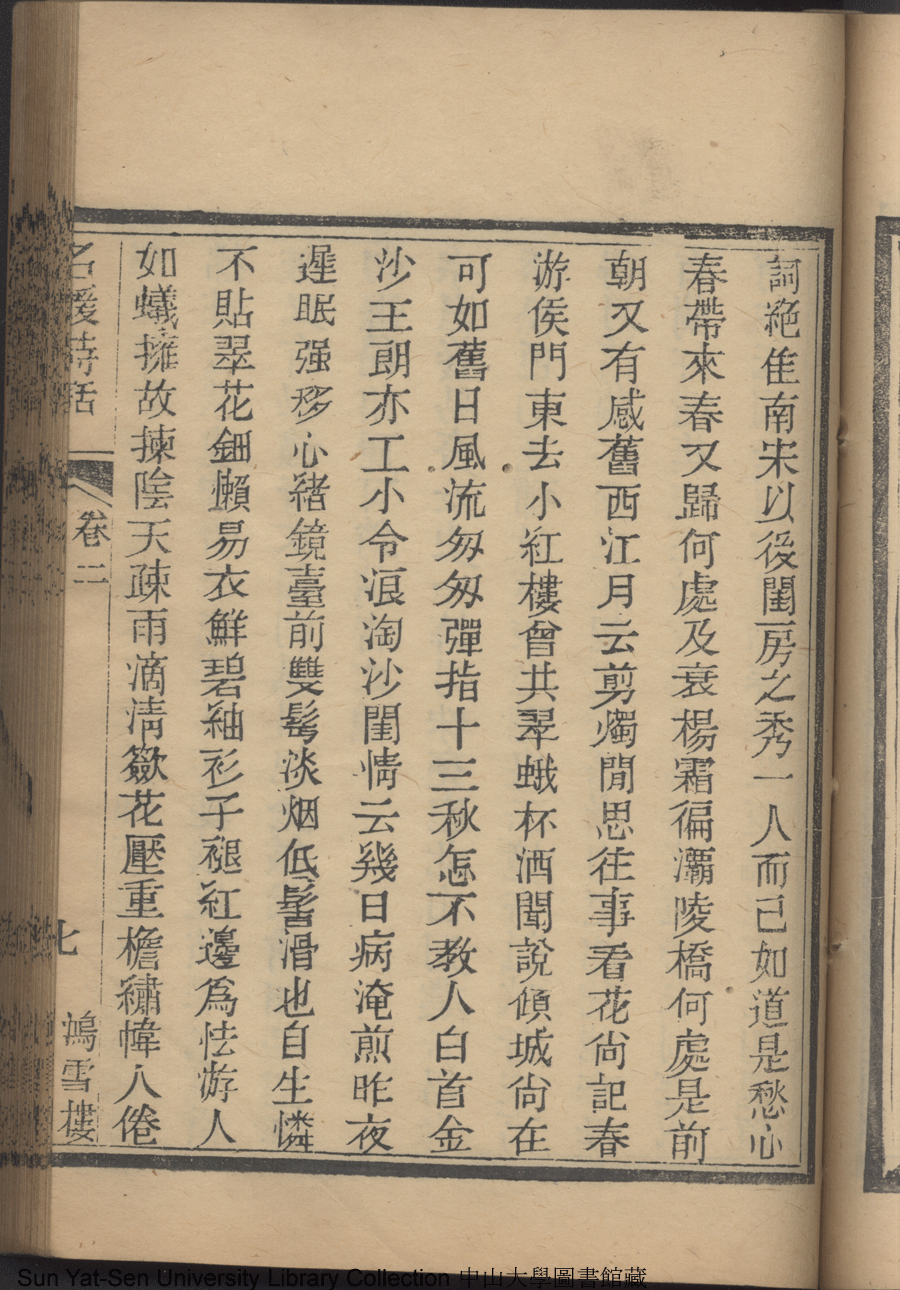 詞絶隹南宋以後閨房之秀一人而已如道是愁心
春帶來春又歸何處及衰楊霜徧灞陵橋何處是前
朝又有感舊西江月云剪燭閒思往事看花尙記春
游侯門東去小紅樓曾共翠蛾杯酒聞說傾城尙在
可如舊日風流匆匆彈指十三秋怎不教人白首金
沙王朗亦工小令浪淘沙閨情云幾日病淹煎昨夜
遲眠强移心緒鏡臺前雙鬂淡烟低髻滑也自生憐
不貼翠花鈿懶易衣鮮碧紬衫子褪紅邊爲怯游人
如蟻擁故揀陰天疎雨滴淸籨花壓重檐繡幃人倦
名媛詩話 卷二 七 鴻雪樓
Sun Yat-Sen University Library Collection 中山大學圖書館藏